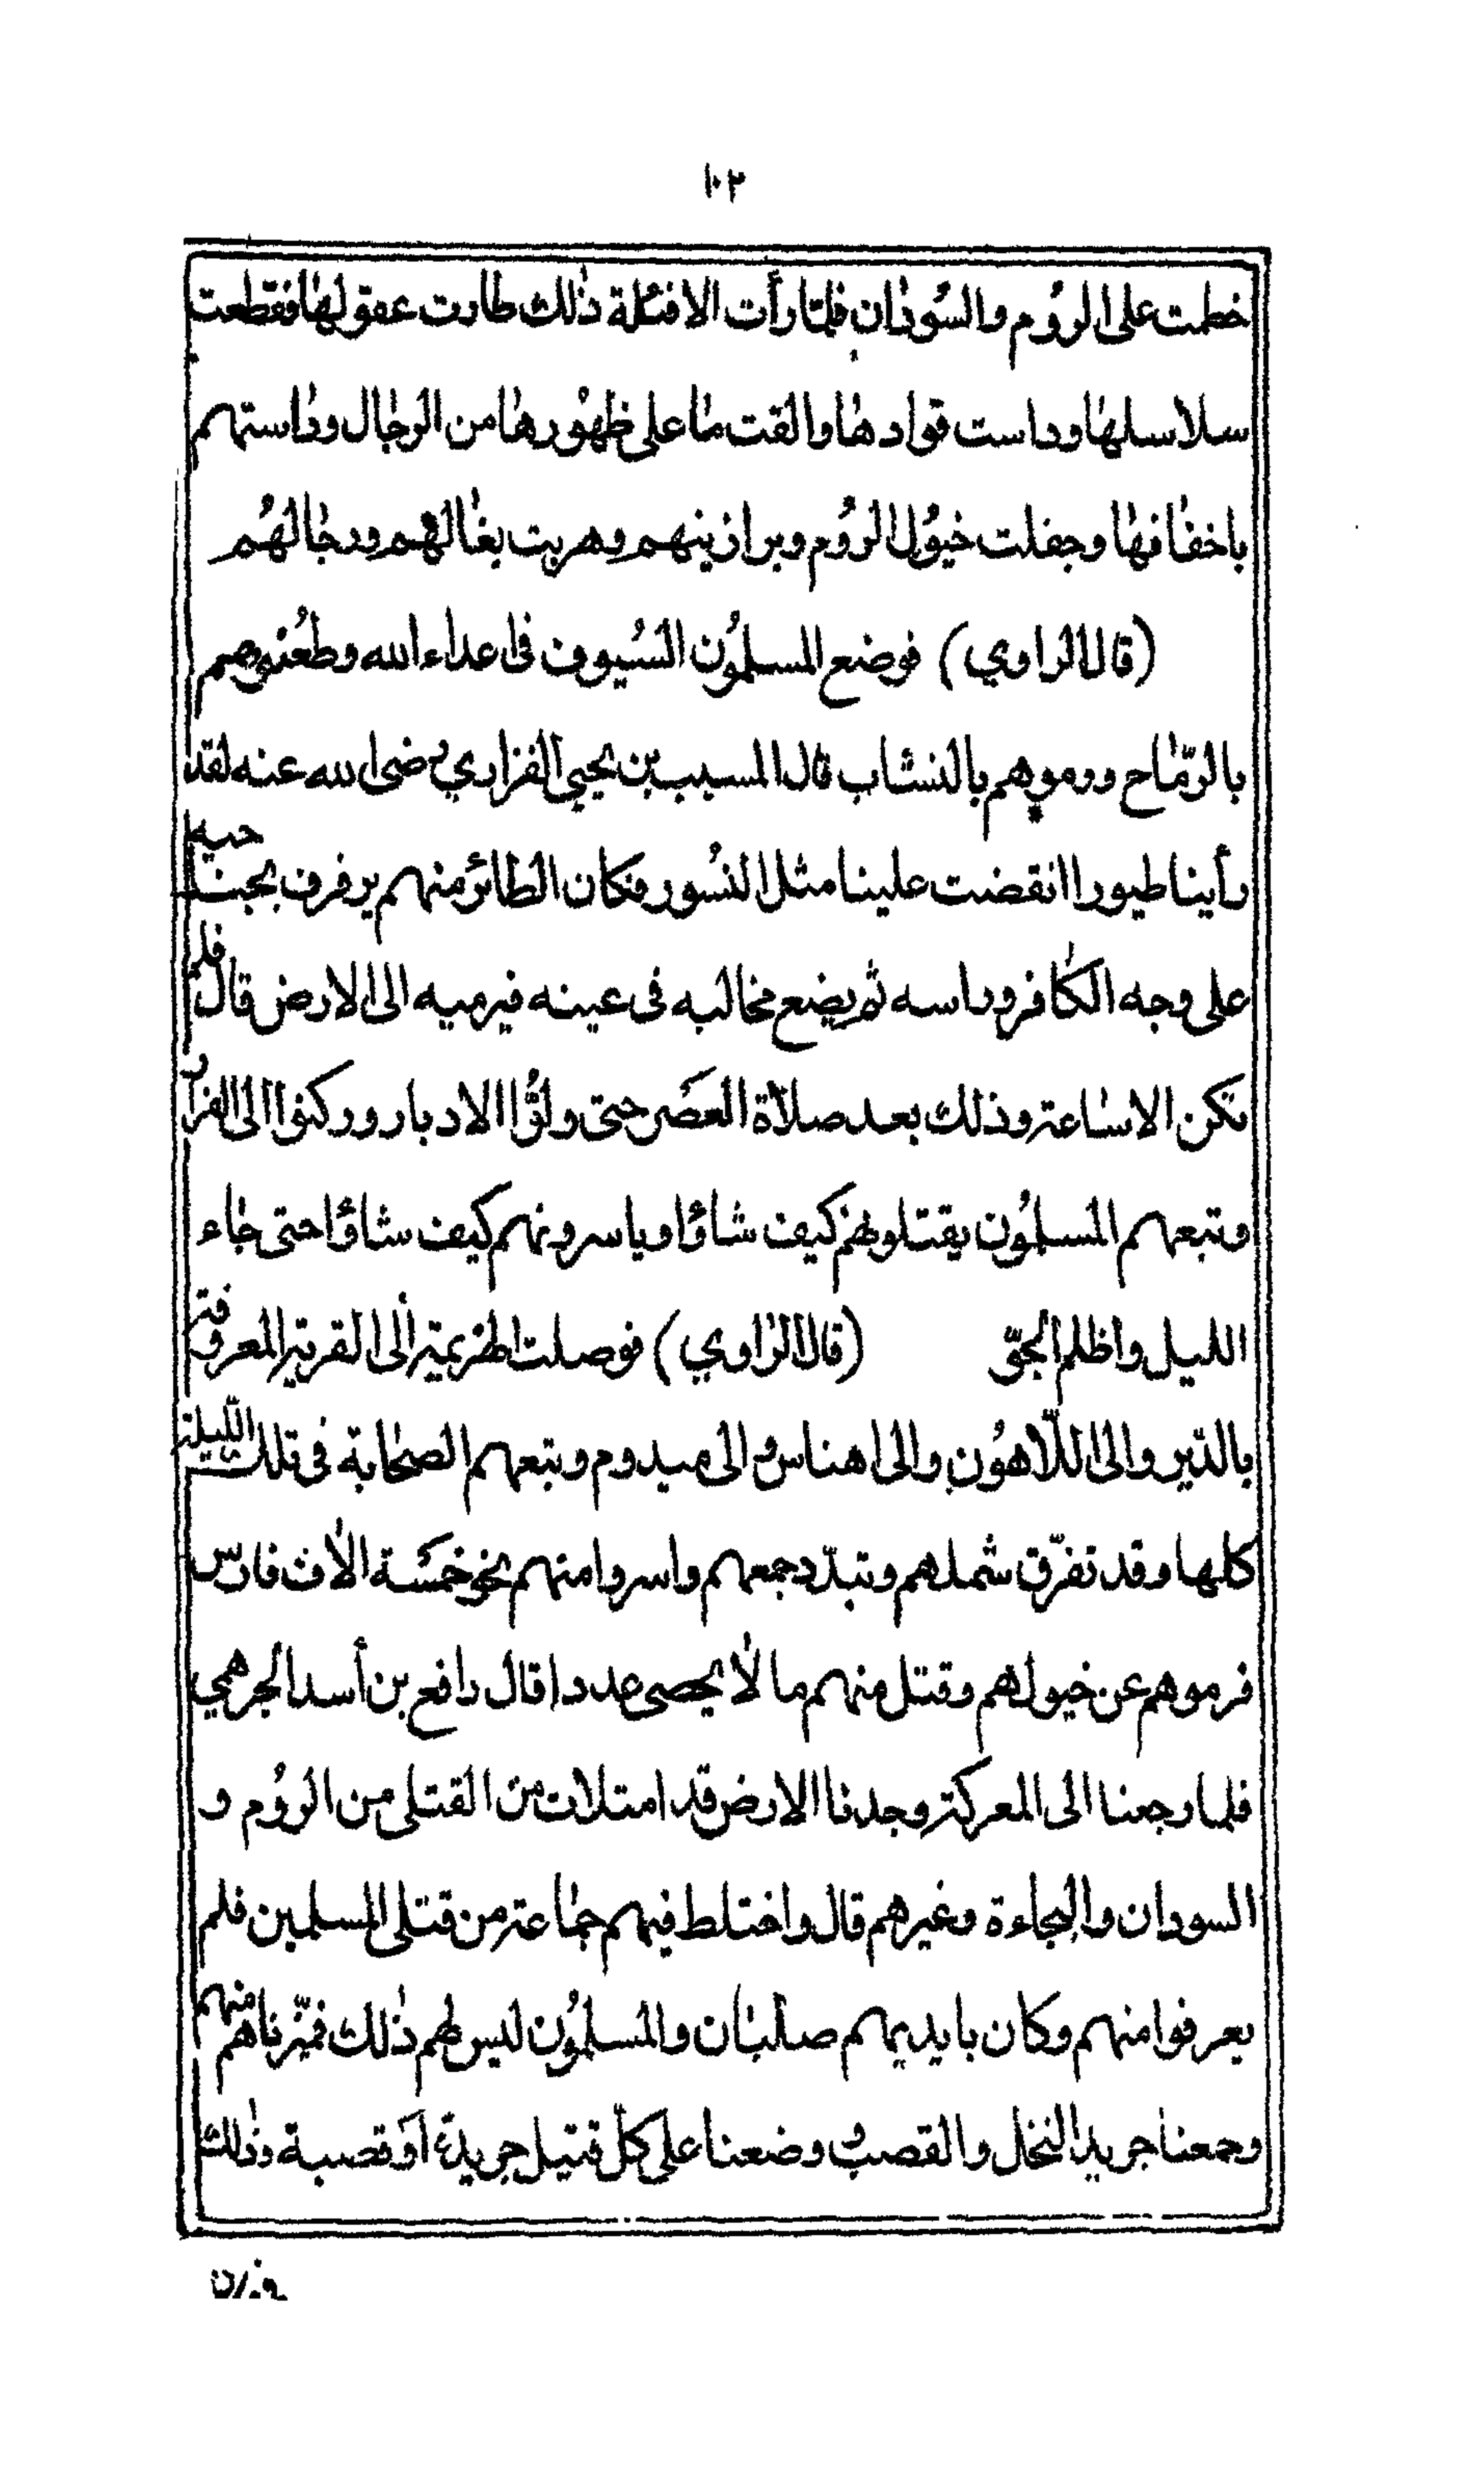 ١٠٢
خطمت على الروُم والسُودٰان فلمّا رأت الافئلة ذٰلك طارت عقولهٰا فقطعت
سلاسلهٰا وداست قوادهٰا والقت مٰا على ظهوُرهٰا من الرجٰال ودٰاستهم
باخفٰافهٰا وجفلت خيوُل الروُم وبراذينهم وهربت بغٰالهم ورجٰالهُم
(قال الراوي) فوضع المسلموُن السُيوف فى اعداء الله وطعُنوهم
بالرّمٰاح ورموهم بالنشاب قال المسيب بن يحيى الفزاري رضى الله عنه لقد
رأينا طيورا انقضت علينا مثل النسُور فكان الطائر منهم يرفرف بجناحيه
على وجه الكٰافر وراسه ثم يضع مخالبه فى عينه فيرميه الى الارض قال فلم
تكن الا سٰاعة وذلك بعد صلاة العصَر حتى ولوُّا الادبار وركنوا الى الفرار
وتبعهم المسلموُن يقتلونهم كيف شاؤا وياسرونهم كيف شاؤا حتى جٰاء
الليل واظلم الجوّ (قال الرٰاوي) فوصلت الهزيمة الٰى القرية المعروفة
بالدّير والى اللّاهوُن والى اهناس والى ميدوم وتبعهم الصحٰابة فى تلك الليلة
كلها وقد تفرّق شملهم وتبدّد جمعهم واسروا منهم نحو خمسَة الاٰف فارس
فرموهم عن خيولهم وقتل منهم ما لاٰ يحصى عددا قال رافع بن أسد الجرهمي
فلما رجعنا الى المعركة وجدنا الارض قد امتلات من القتلى من الروُم و
السودان والبجاءة وغيرهم قال واختلط فيهم جمٰاعة من قتلى المسلمين فلم
يعرفوا منهم وكان بايديهم صلبٰان والمسلموُن ليس لهم ذٰلك فميّزناهم منهم
وجمعنا جريد النخل والقصب ووضعنا على كلّ قتيل جريدة اوَ قصبة وذٰلك